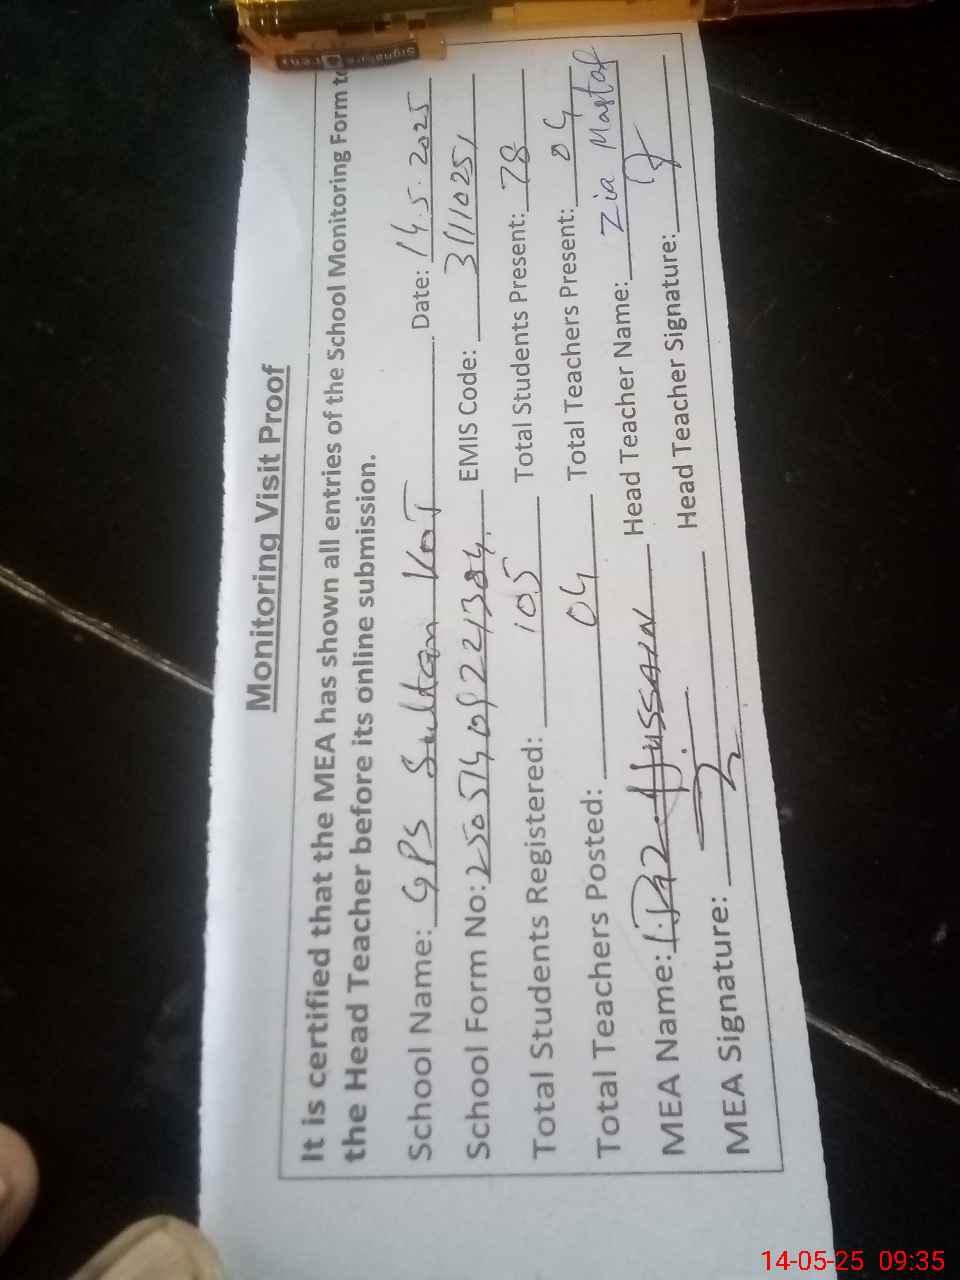 Monitoring Visit Proof
It is certified that the MEA has shown all entries of the School Monitoring Form to
the Head Teacher before its online submission.
School Name: GPS Sultan Kot Date: 14.5.2025
School Form No: EMIS Code: 31111025
Total Students Registered: 105 Total Students Present: 78
Total Teachers Posted: 04 Total Teachers Present: 04
MEA Name: HUSSAIN Head Teacher Name: Zia Mustaf
MEA Signature: Head Teacher Signature:
Signature
14-05-25 09:35